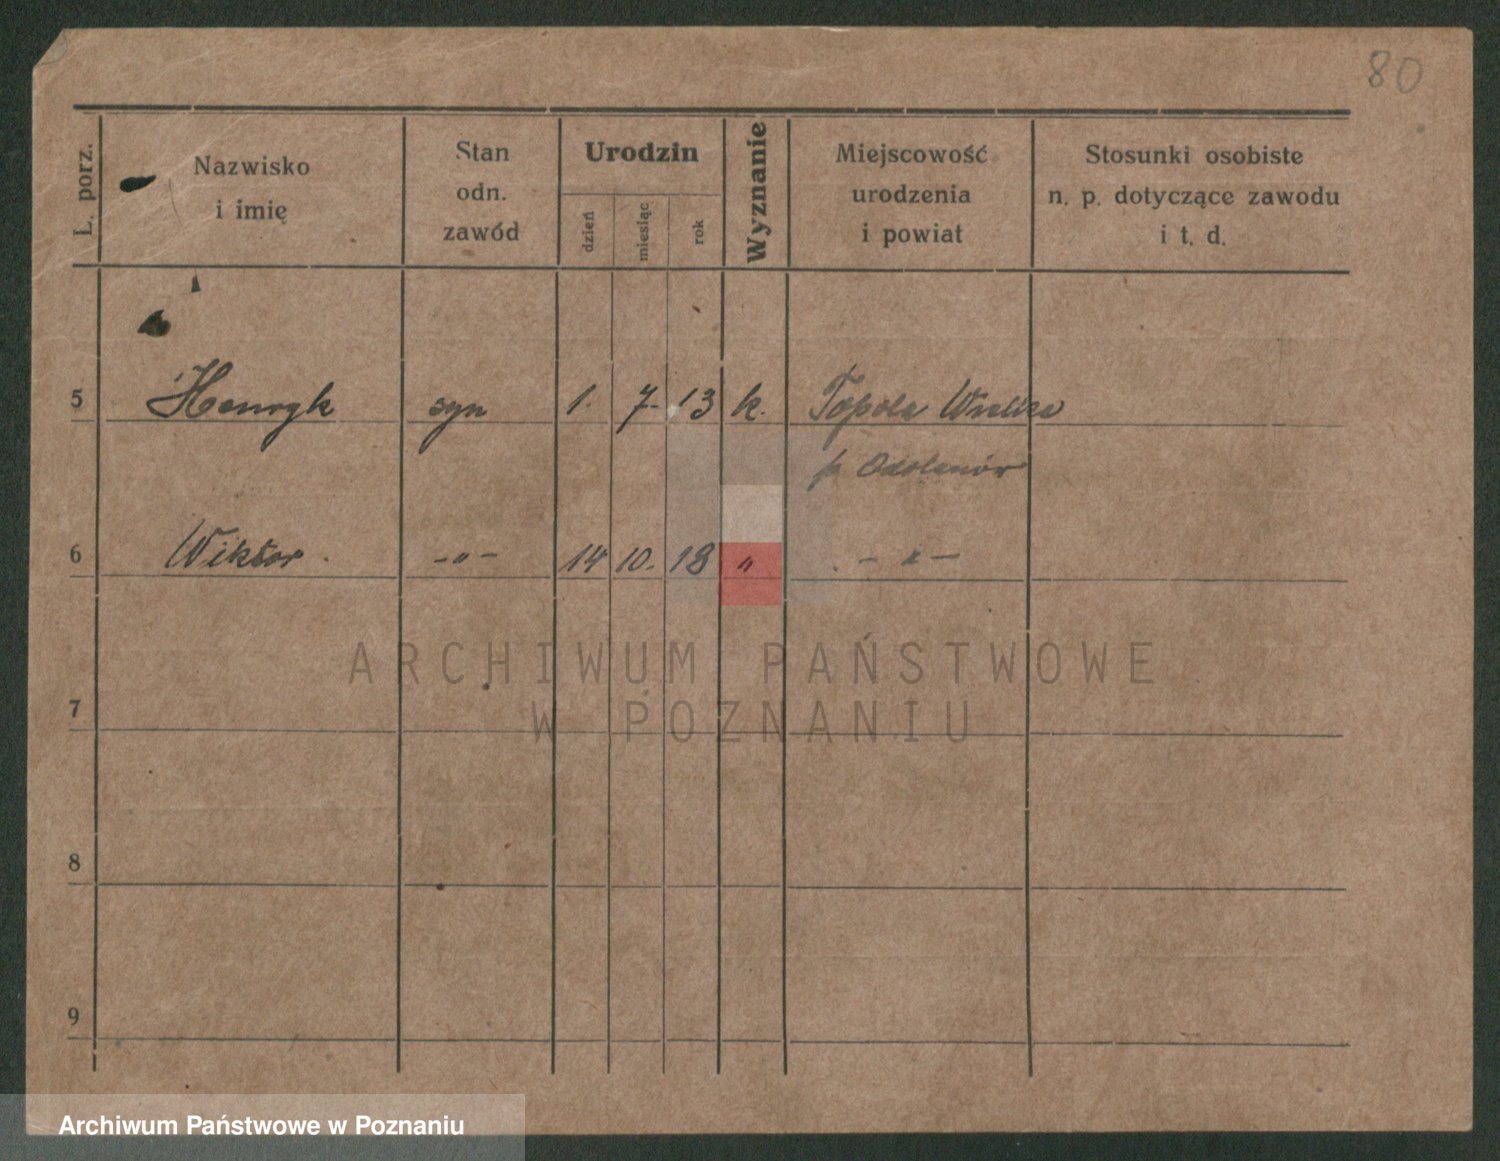 80
L. porz.
Nazwisko
i imię
Stan
odn.
zawód
Urodzin
dzień
miesiąc
rok
Wyznanie
Miejscowość
urodzenia
i powiat
Stosunki osobiste
n. p. dotyczące zawodu
i t. d.
5 Henryk syn 1. 7. 13 k. Topola Wielka
p Odolanów
6 Wiktor - „ - 14 10. 18 „ - „ -
7
8
9
ARCHIWUM PAŃSTWOWE
W POZNANIU
Archiwum Państwowe w Poznaniu